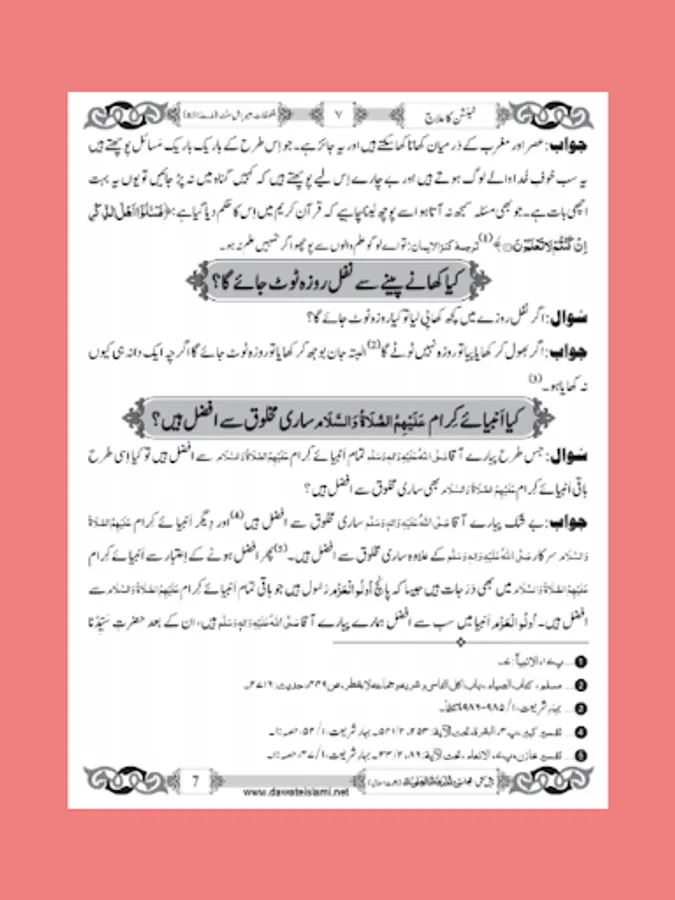 ٹینشن کا علاج
۷
ملفوظاتِ امیرِ اہلِ سنّت
جواب: عصر اور مغرب کے دَرمیان کھانا کھا سکتے ہیں اور یہ جائز ہے۔ جو اِس طرح کے باریک باریک مَسائل پوچھتے ہیں
یہ سب خوفِ خُدا والے لوگ ہوتے ہیں اور بے چارے اِس لیے پوچھتے ہیں کہ کہیں گناہ میں نہ پڑ جائیں تو یوں یہ بہت
اچھی بات ہے۔ جو بھی مسئلہ سمجھ نہ آتا ہو اسے پوچھ لینا چاہیے کہ قرآنِ کریم میں اِس کا حکم دیا گیا ہے: ﴿فَسْــٴَـلُوْۤا اَهْلَ الذِّكْرِ
اِنْ كُنْتُمْ لَا تَعْلَمُوْنَ﴾(1) ترجمۂ کنز الایمان: تو اے لوگو علم والوں سے پوچھو اگر تمہیں علم نہ ہو۔
کیا کھانے پینے سے نفل روزہ ٹوٹ جائے گا؟
سُوال: اگر نفل روزے میں کچھ کھا پی لیا تو کیا روزہ ٹوٹ جائے گا؟
جواب: اگر بھول کر کھایا پیا تو روزہ نہیں ٹوٹے گا(2) البتہ جان بوجھ کر کھایا تو روزہ ٹوٹ جائے گا اگرچہ ایک دانہ ہی کیوں
نہ کھایا ہو۔(3)
کیا اَنبیائے کِرام عَلَیْہِمُ الصَّلَاۃُ وَالسَّلَام ساری مخلوق سے افضل ہیں؟
سُوال: جس طرح پیارے آقا صَلَّی اللہُ عَلَیْہِ وَاٰلِہٖ وَسَلَّم تمام اَنبیائے کِرام عَلَیْہِمُ الصَّلَاۃُ وَالسَّلَام سے افضل ہیں تو کیا اِسی طرح
باقی اَنبیائے کِرام عَلَیْہِمُ الصَّلَاۃُ وَالسَّلَام بھی ساری مخلوق سے افضل ہیں؟
جواب: بے شک پیارے آقا صَلَّی اللہُ عَلَیْہِ وَاٰلِہٖ وَسَلَّم ساری مخلوق سے افضل ہیں(4) اور دِیگر اَنبیائے کِرام عَلَیْہِمُ الصَّلَاۃُ
وَالسَّلَام سرکار صَلَّی اللہُ عَلَیْہِ وَاٰلِہٖ وَسَلَّم کے علاوہ ساری مخلوق سے افضل ہیں۔(5) پھر افضل ہونے کے اِعتبار سے اَنبیائے کِرام
عَلَیْہِمُ الصَّلَاۃُ وَالسَّلَام میں بھی دَرَجات ہیں جیسا کہ پانچ اُولُوا الْعَزْم رَسُول ہیں جو باقی تمام اَنبیائے کِرام عَلَیْہِمُ الصَّلَاۃُ وَالسَّلَام سے
افضل ہیں۔ اُولُوا الْعَزْم اَنبیا میں سب سے افضل ہمارے پیارے آقا صَلَّی اللہُ عَلَیْہِ وَاٰلِہٖ وَسَلَّم ہیں، ان کے بعد حضرتِ سَیِّدُنا
1 … پ۱۷، الانبیآ: ۷۔
2 … مسلم، کتاب الصیام، باب اکل الناسی و شربہ وجماعہ لا یفطر، ص۴۴۹، حدیث: ۲۷۱۶۔
3 … بہارِ شریعت، ۱/ ۹۸۵-۹۸۶
4 … تفسیر کبیر، پ۳، البقرة، تحت الآیة: ۲۵۳، ۲/ ۵۲۱۔ بہارِ شریعت، ۱/ ۵۲، حصہ: ۱۔
5 … تفسیر خازن، پ۷، الانعام، تحت الآیة: ۸۶، ۲/ ۳۳۔ بہارِ شریعت، ۱/ ۴۷، حصہ: ۱۔
7
www.dawateislami.net